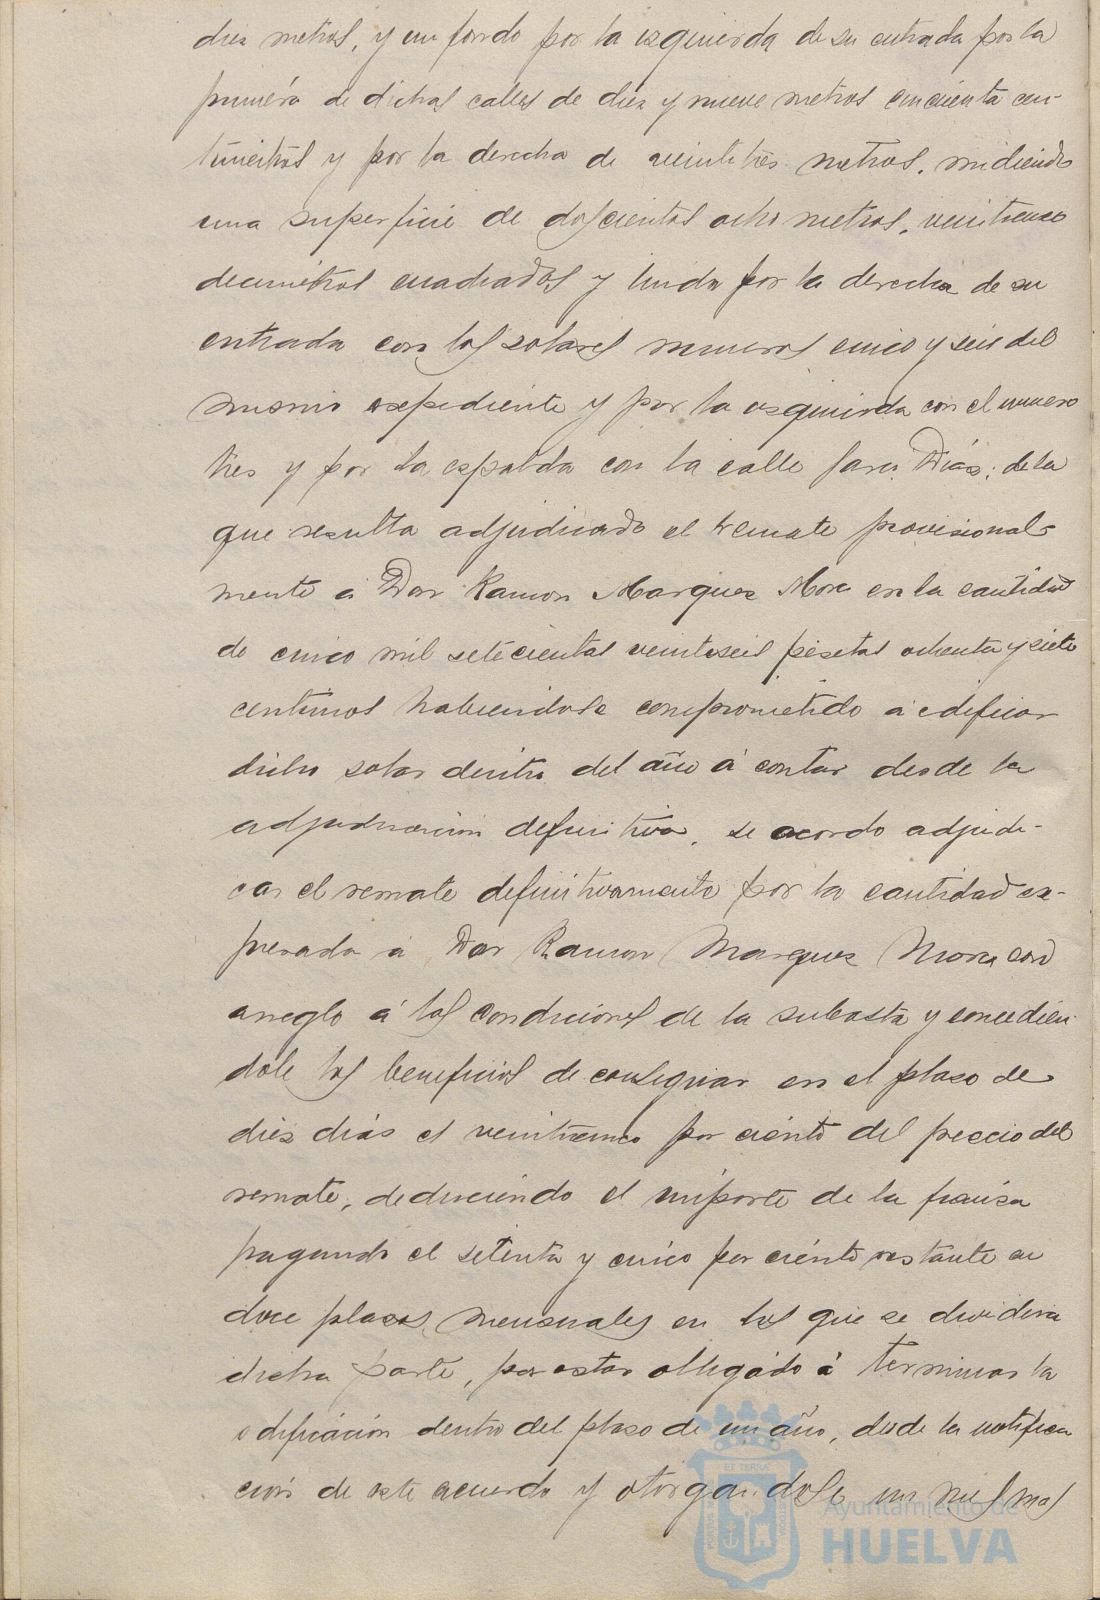 diez metros, y un fondo por la izquierda de su entrada por la
primera de dichas calles de diez y nueve metros cincuenta cen-
timetros y por la derecha de veintitres metros, midiendo
una superficie de doscientos ocho metros, veinticinco
decimetros cuadrados y linda por la derecha de su
entrada con los solares numeros cinco y seis del
mismo expediente y por la izquierda con el numero
tres y por la espalda con la calle Diaz; de la
que resulta adjudicado el remate provisional-
mente á Don Ramon Marquez Mora en la cantidad
de cinco mil setecientas veintiseis pesetas ochenta y siete
centimos habiendose comprometido á edificar
dicho solar dentro del año á contar desde la
adjudicación definitiva, se acordo adjudi-
car el remate definitivamente por la cantidad ex-
presada á Don Ramon Marquez Mora con
arreglo á las condiciones de la subasta y concedien-
dole los beneficios de consignar en el plazo de
diez dias el veinticinco por ciento del precio del
remate, deduciendo el importe de la fianza
pagando el setenta y cinco por ciento restante en
doce plazos mensuales en los que se dividira
dicha parte, por estar obligado á terminar la
edificación dentro del plazo de un año, desde la notifica
ción de este acuerdo y otorgandole un mes mas
Ayuntamiento de
HUELVA